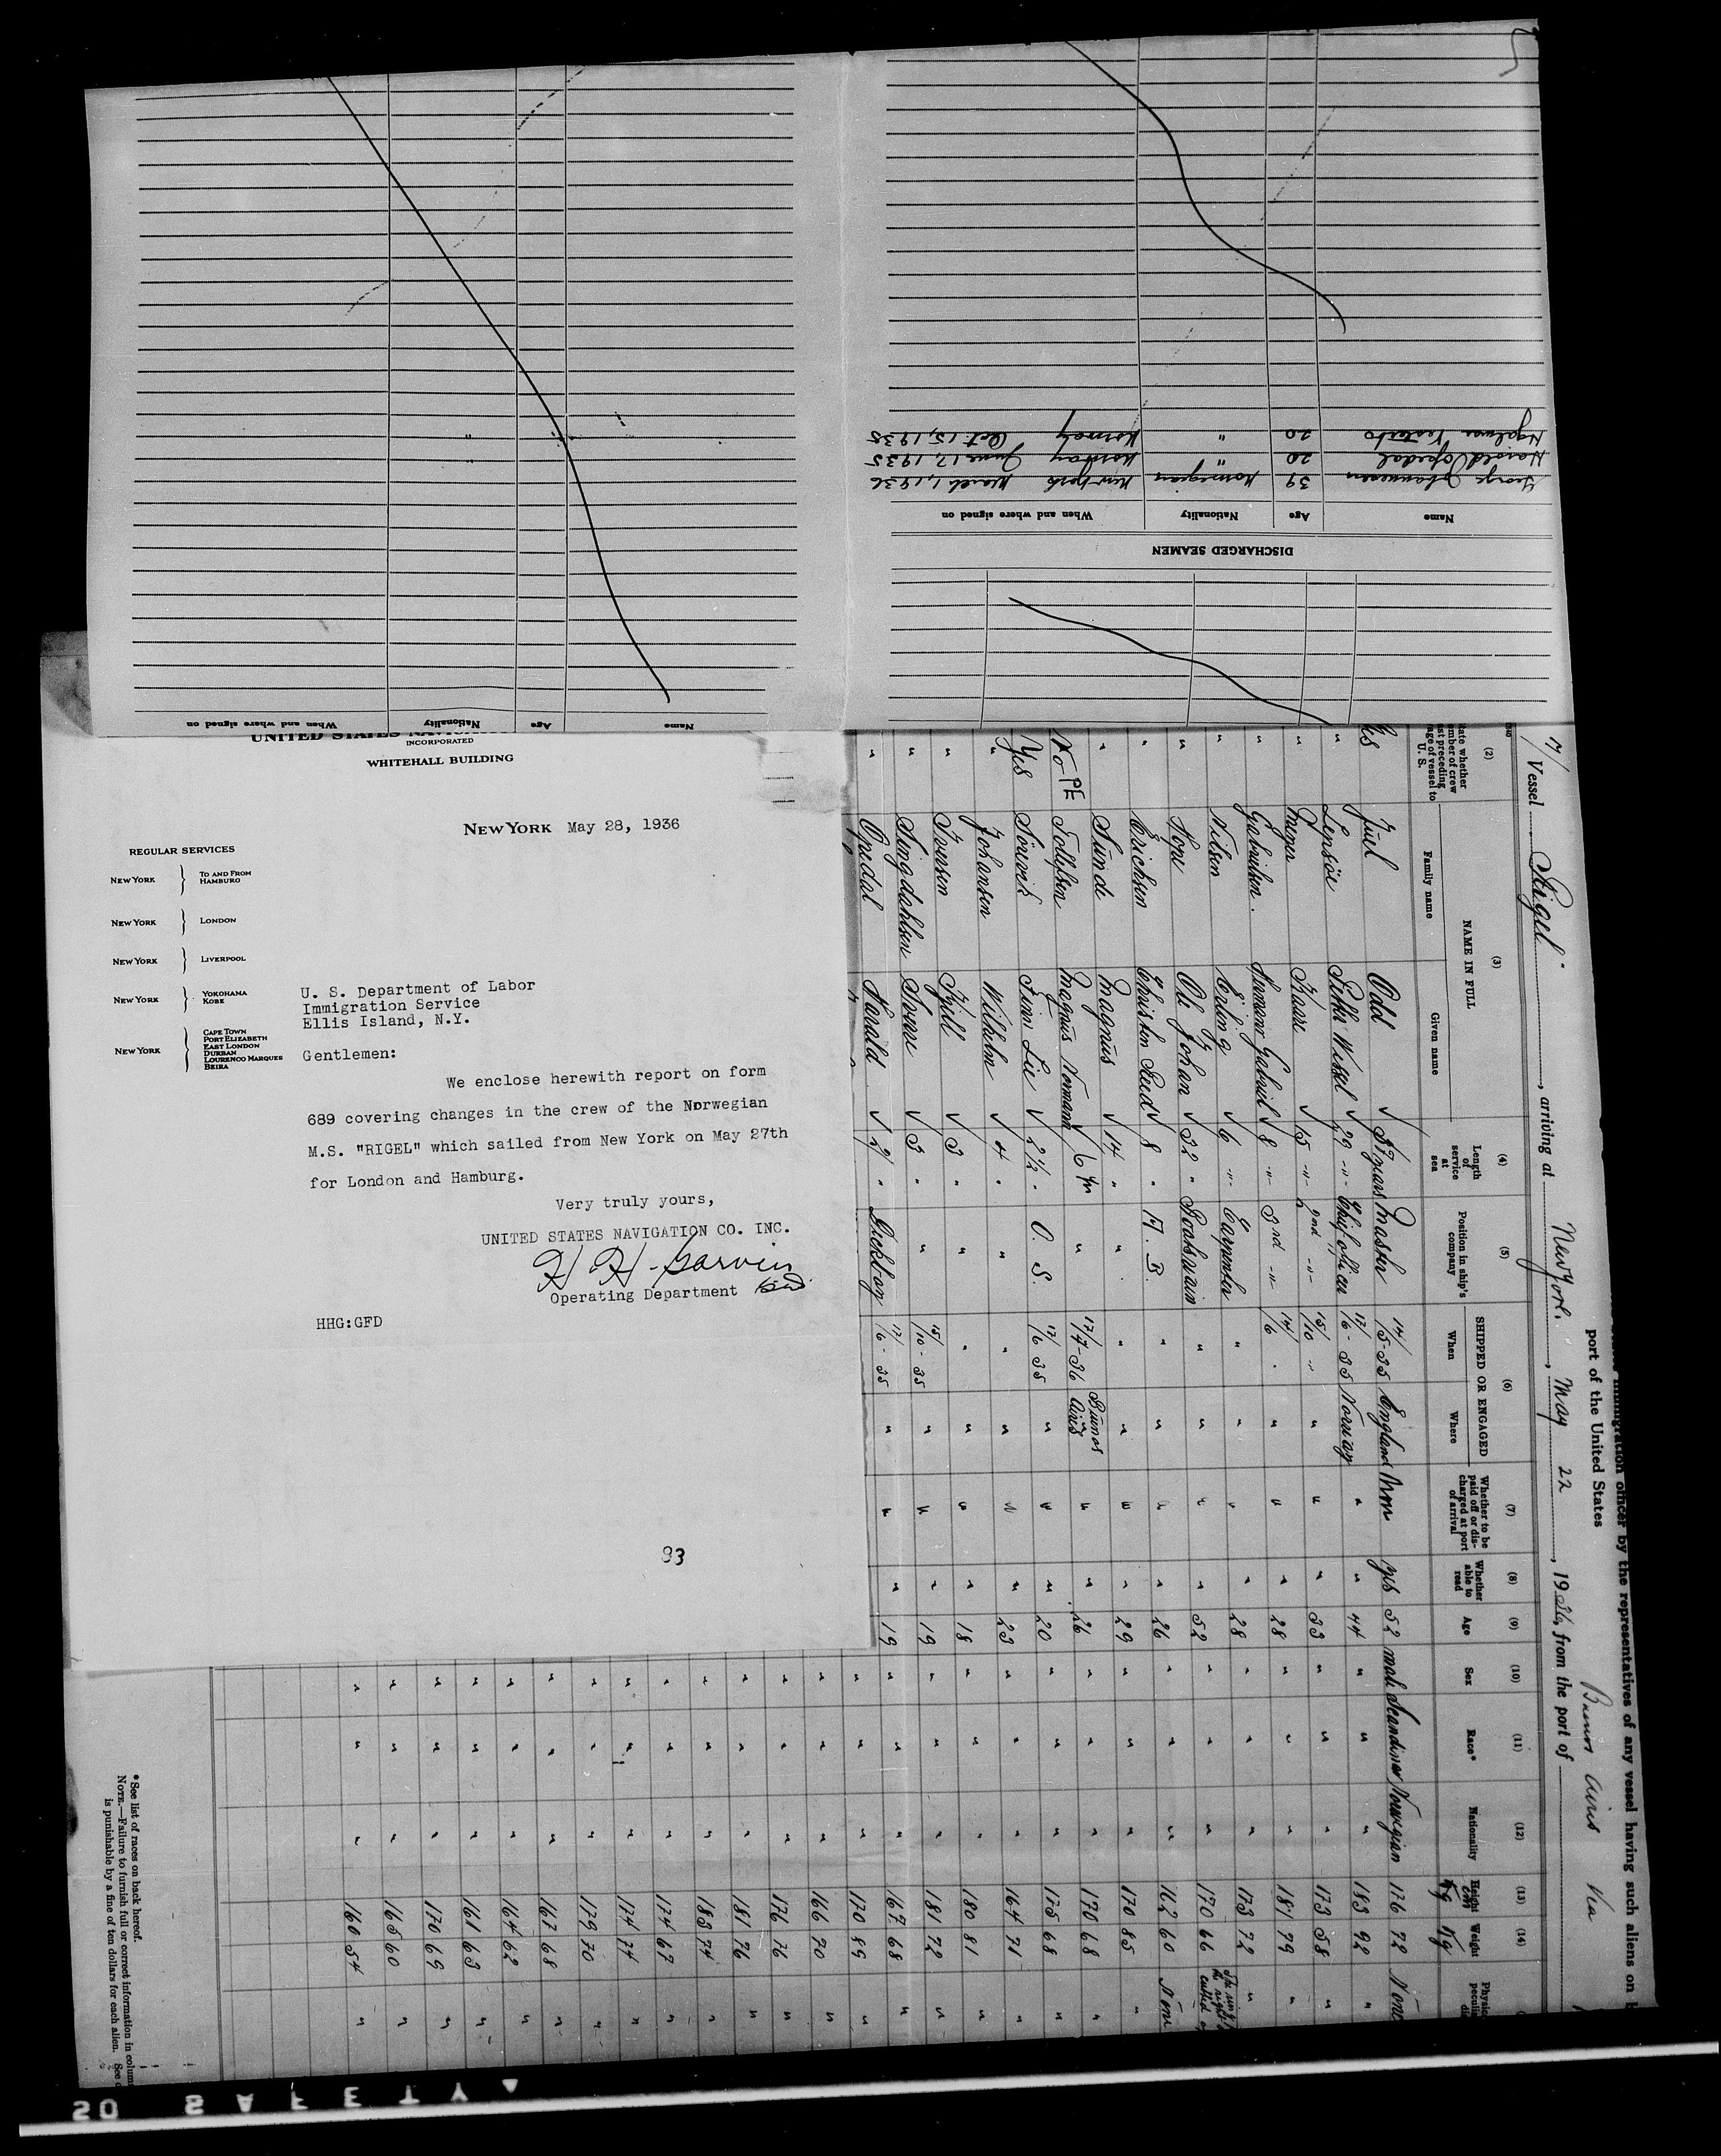 DISCHARGED SEAMEN
Name Age Nationality When and where signed on
George Johannesen 39 Norwegian New York March 1, 1936
Harold Opedal 20 " Norway June 17, 1935
20 " Norway Oct. 15, 1935
Name Age Nationality When and where signed on
UNITED STATES
INCORPORATED
WHITEHALL BUILDING
NEW YORK May 28, 1936
REGULAR SERVICES
NEW YORK } TO AND FROM HAMBURG
NEW YORK } LONDON
NEW YORK } LIVERPOOL
NEW YORK } YOKOHAMA KOBE
NEW YORK } CAPE TOWN PORT ELIZABETH EAST LONDON DURBAN LOURENCO MARQUES BEIRA
U. S. Department of Labor
Immigration Service
Ellis Island, N.Y.
Gentlemen:
We enclose herewith report on form
689 covering changes in the crew of the Norwegian
M.S. "RIGEL" which sailed from New York on May 27th
for London and Hamburg.
Very truly yours,
UNITED STATES NAVIGATION CO. INC.
H. H. Garvin
Operating Department
HHG:GFD
93
immigration officer by the representatives of any vessel having such aliens on
port of the United States Buenos Aires Via
Vessel Rigel, arriving at New York, May 22, 1936, from the port of
(2) (3) (4) (5) (6) (7) (8) (9) (10) (11) (12) (13) (14)
NAME IN FULL
Family name Given name
Length of service at sea
Position in ship's company
SHIPPED OR ENGAGED
When Where
Whether to be paid off or discharged at port of arrival
Whether able to read
Age Sex Race* Nationality Height Weight
Juel Odd Master 14/5-35 England yes 52 male Norwegian 176 72 None
Wessel 29 " Chief officer 17/6-35 Norway " 44 " " " 183 92 "
Meyer Kaare 15 " 2nd " 15/10 " " " " 33 " " " 173 58 "
Gabrielsen Gabriel 8 " 3rd " 14/6 " " " " 28 " " " 181 79 "
Nilsen Erling 6 " Carpenter " " " " 28 " " " 173 72 "
Ole Johan 32 " Boatswain " " " " 52 " " " 170 66
Erichsen Christen 8 " A. B. " " " " 26 " " " 162 60 None
Sund Magnus 14 " " " " " " 29 " " " 170 85 "
No PE Tollefsen Magnus Normann 6 yr " 17/4-36 Buenos Aires " " 26 " " " 170 68 "
Yes Finn Lie 2½ " O. S. 17/6 35 " " " 20 " " " 175 68 "
" Johansen Wilhelm 4 " " " " " " 23 " " " 164 71 "
" Iversen 3 " " " " " " 18 " " " 180 81 "
" Singdahlsen Sverre 3 " " 15/10-35 " " " 19 " " " 181 72 "
" Opedal Harald 2 " Deckboy 17/6-35 " " " 19 " " " 167 68 "
" " " 170 89 "
" " " 166 70 "
" " " 176 76 "
" " " 181 76 "
" " " 183 74 "
" " " 174 67 "
" " " 174 74 "
" " " 179 70 "
" " " 167 68 "
" " " 164 62 "
" " " 161 63 "
" " " 176 69 "
" " " 165 60 "
" " " 166 54 "
*See list of races on back hereof.
NOTE.—Failure to furnish full or correct information in colum
is punishable by a fine of ten dollars for each alien. See
SAFETY